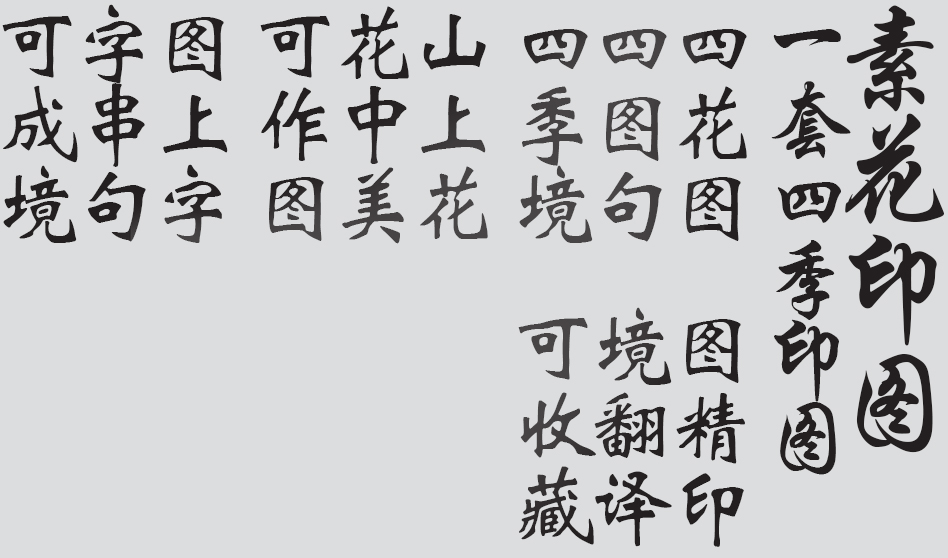 素花印图
一套四季印图
四花图
四图句
四季境
图精印
境翻译
可收藏
山上花
花中美
可作图
图上字
字串句
可成境